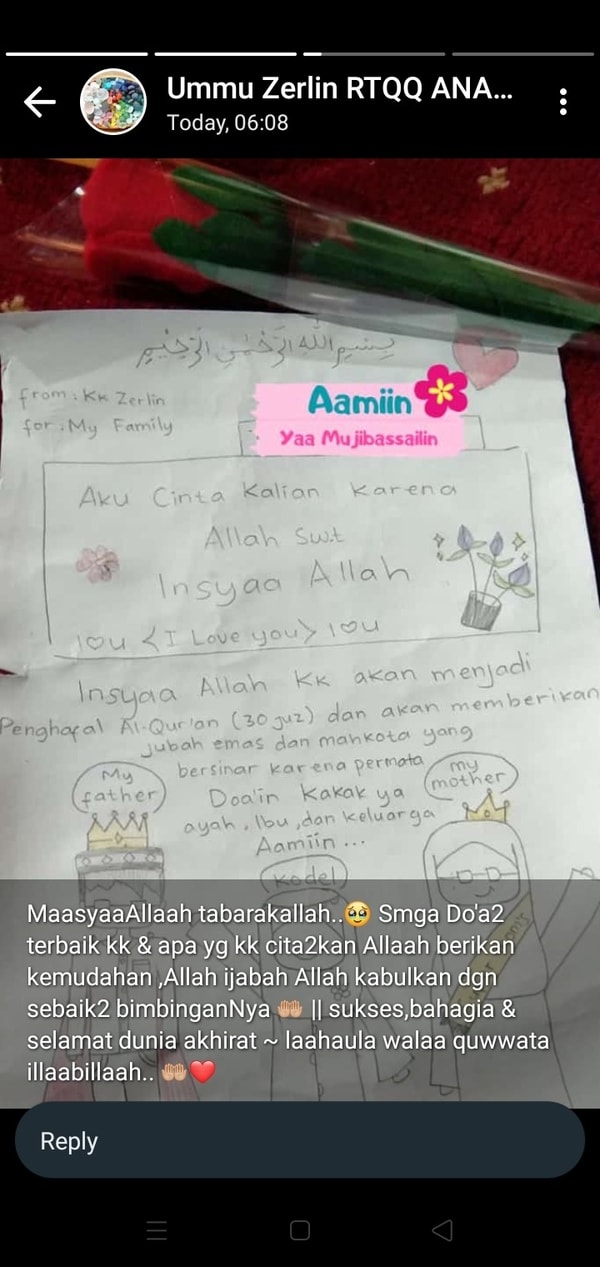 Ummu Zerlin RTQQ ANA...
Today, 06:08
بِسْمِ اللَّهِ الرَّحْمَنِ الرَّحِيمِ
from : Kk Zerlin
for : My Family
Aamiin
Yaa Mujibassailin
Aku Cinta Kalian Karena
Allah Swt
Insyaa Allah
I♡u <I Love you> I♡u
Insyaa Allah Kk akan menjadi
Penghafal Al-Qur'an (30 juz) dan akan memberikan
jubah emas dan mahkota yang
bersinar karena permata
Doa'in Kakak ya
ayah, Ibu, dan keluarga
Aamiin ...
My
father
my
mother
Kodel
MaasyaaAllaah tabarakallah..🥹 Smga Do'a2
terbaik kk & apa yg kk cita2kan Allaah berikan
kemudahan ,Allah ijabah Allah kabulkan dgn
sebaik2 bimbinganNya 🤲🏼 || sukses,bahagia &
selamat dunia akhirat ~ laahaula walaa quwwata
illaabillaah.. 🤲🏼❤️
Reply